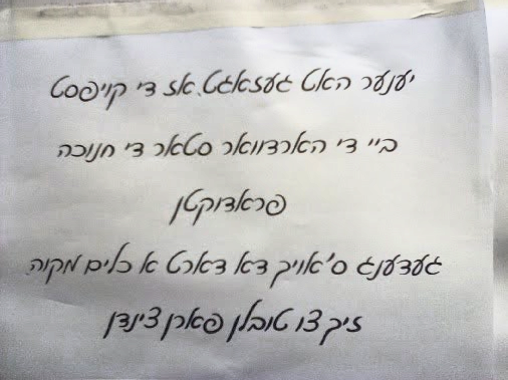 יענער האט געזאגט. אז די קויפסט
ביי די הארדוואר סטאר די חנוכה
פראדוקטן
געדענג ס'אויך דא דארט א כלים מקוה
זיך צו טובלן פארן צינדן